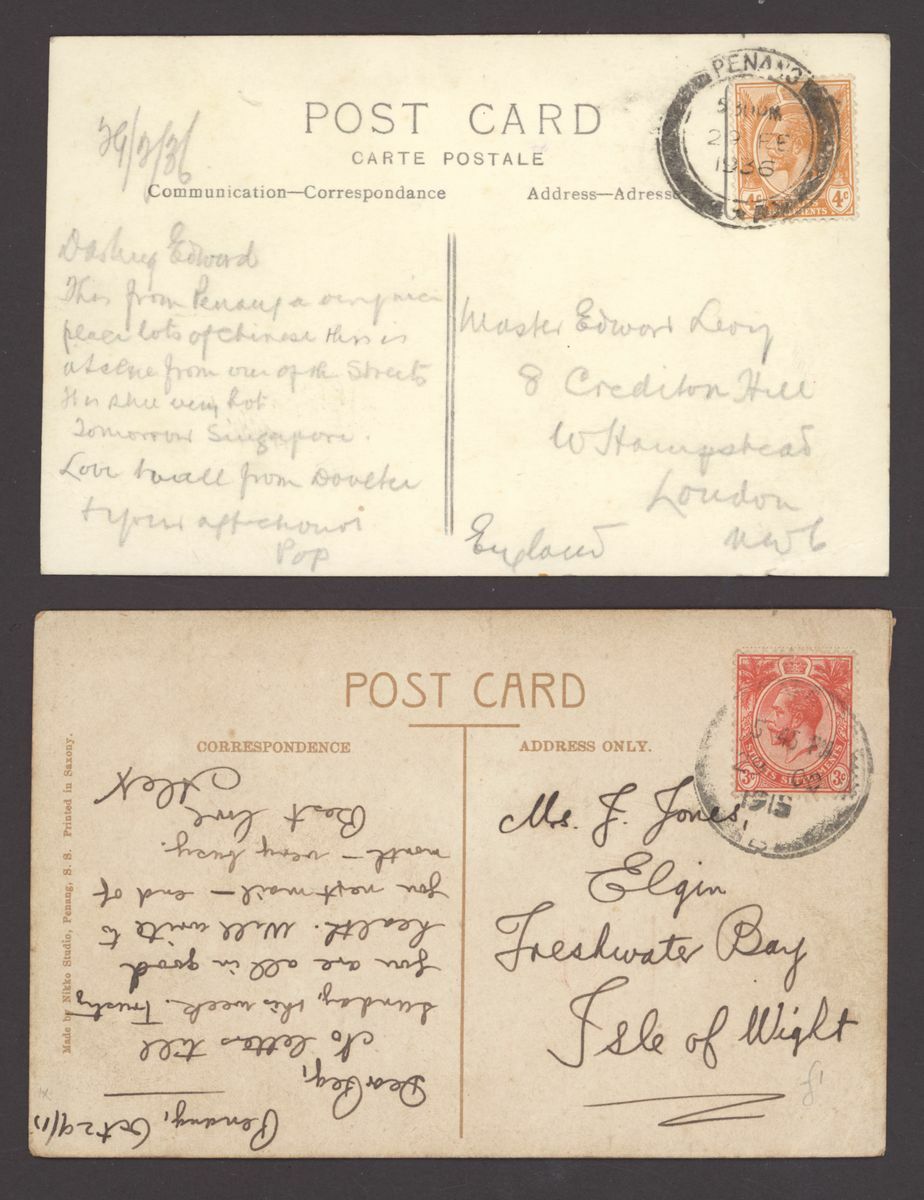 POST CARD
CARTE POSTALE
Communication—Correspondence
Address—Adresse
PENANG
5.30PM
29 FE
1936
4c 4c
29/2/36
Darling Edward
This from Penang a very nice
place lots of Chinese this is
a from one of the Streets
It is still very hot
Tomorrow Singapore.
Love to all from
& your
Pop
Master Edward Levy
8 Crediton Hill
W Hampstead
London
England NW6
POST CARD
CORRESPONDENCE
ADDRESS ONLY.
3c 3c
1915
Made by Nikko Studio, Penang, S. S. Printed in Saxony.
Penang, Oct 29/15
Dear Peg,
No letters till
Sunday, this week. Trusting
you are all in good
health. Will write to
you next mail — end of
month — very busy.
Best love
Alex
Mrs. J. Jones,
Elgin
Freshwater Bay
Isle of Wight